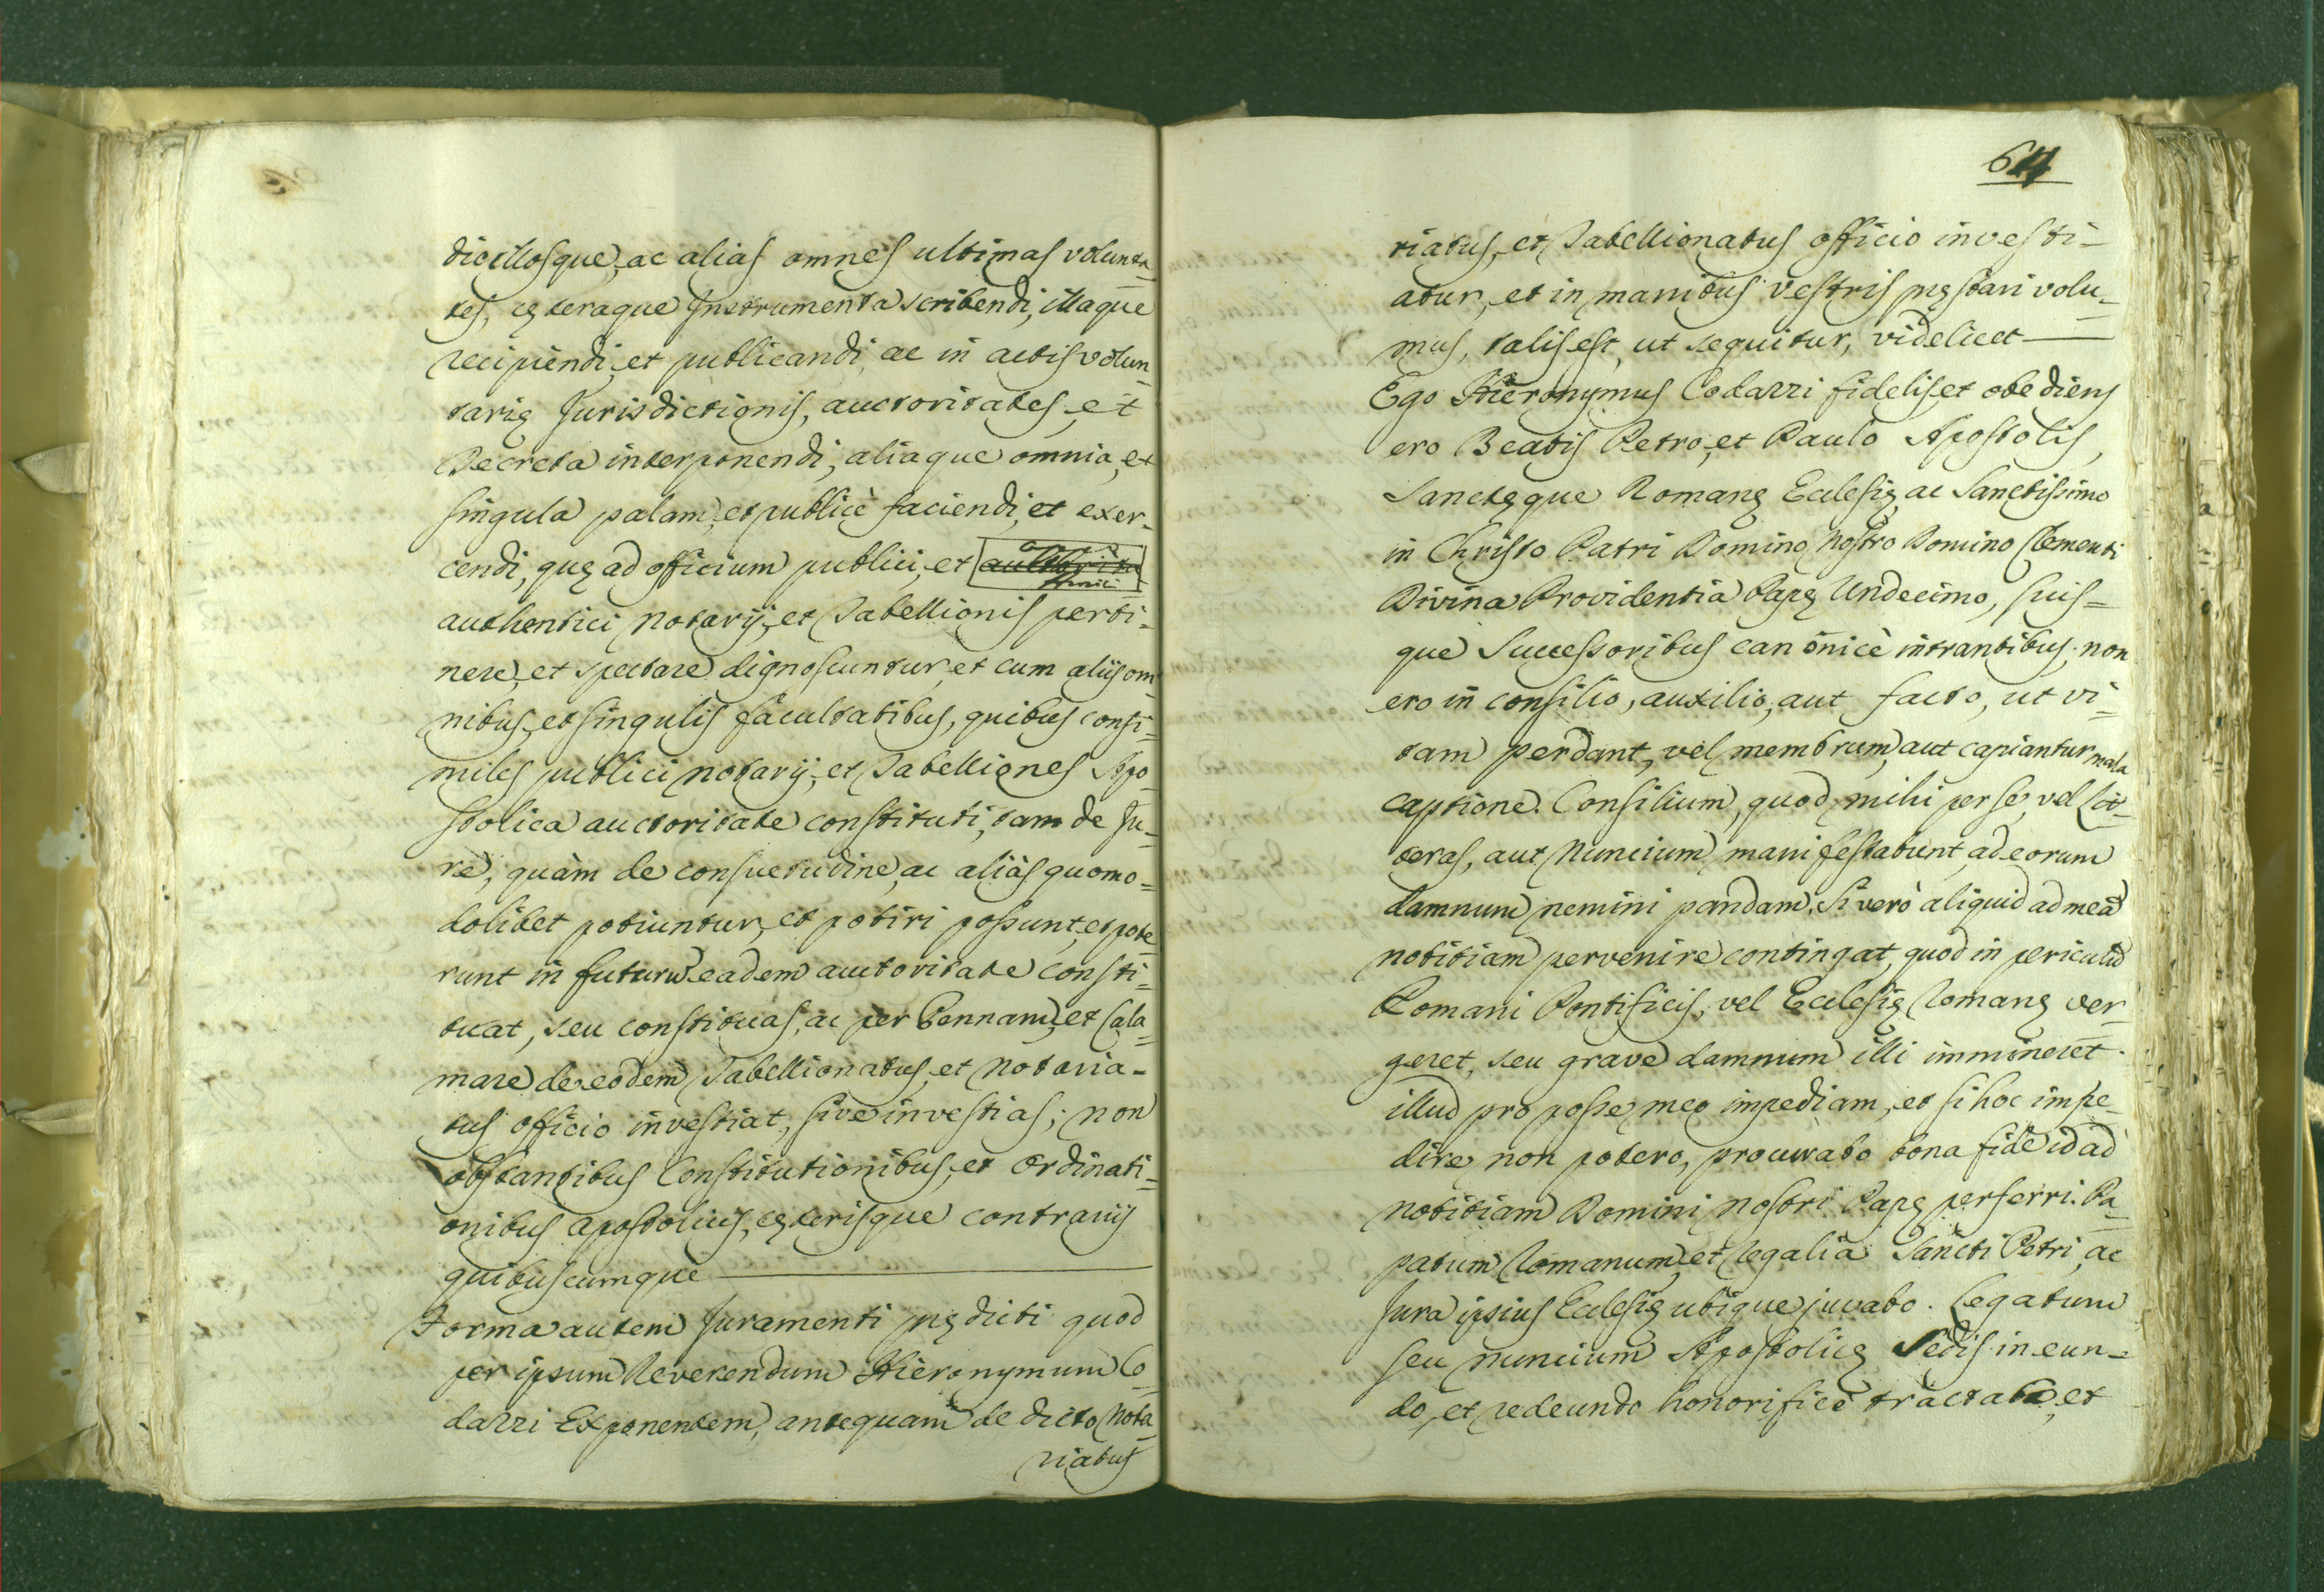 dicillosque, ac alias omnes ultimas volunta-
tes, cęteraque Instrumenta scribendi, illaque
recipiendi, et publicandi, ac in actis volun-
tarię Jurisdictionis, auctoritates, et
Decreta interponendi, aliaque omnia, et
singula palam, et publicè faciendi, et exer-
cendi, quę ad officium publici, et
authentici Notarij, et Tabellionis perti-
nere, et spectare dignoscuntur, et cum aliis om-
nibus, et singulis facultatibus, quibus consi-
miles publici notarij, et Tabelliones Apo-
stolica auctoritate constituti, tam de Ju-
re, quàm de consuetudine, ac aliàs quomo=
dolibet potiuntur, et potiri possunt, et pote-
runt in futurũ eadem auctoritate consti-
tuat, seu constituas, ac per Pennam, et Cala-
mare de eodem Tabellionatus, et Notaria-
tus officio investiat, sive investias; non
obstantibus Constitutionibus, et Ordinati-
onibus Apostolicis, cęterisque contrariis
quibuscumque
Forma autem Juramenti prędicti quod
per ipsum Reverendum Hieronymum Co-
dazzi Exponentem, antequam de dicto Nota-
riatus
611
riatus, et Tabellionatus officio investi-
atur, et in manibus vestris pręstari volu-
mus, talis est, ut sequitur, videlicet
Ego Hieronymus Codazzi fidelis, et obediens
ero Beatis Petro, et Paulo Apostolis,
Sanctęque Romanę Ecclesię, ac Sanctissimo
in Christo Patri Domino Nostro Domino Clementi
Divina Providentia Papę Undecimo, suis=
que Successoribus canonicè intrantibus. non
ero in consilio, auxilio, aut facto, ut vi-
tam perdant, vel membrum, aut capiantur mala
captione. Consilium, quod mihi per se, vel Lit-
teras, aut Nuncium manifestabunt, ad eorum
damnum nemini pandam. Si verò aliquid ad meã
notitiam pervenire contingat, quod in periculũ
Romani Pontificis, vel Ecclesię Romanę ver-
geret, seu grave damnum illi immineret.
illud pro posse meo impediam, et si hoc impe-
dire non potero, procurabo bona fide id ad
notitiam Domini Nostri Papę perferri. Pa-
patum Romanum, et Regalia Sancti Petri, ac
Jura ipsius Ecclesię ubique juvabo. Legatum
seu nuncium Apostolicę Sedis in eun-
do, et redeundo honorificè tractabo, et